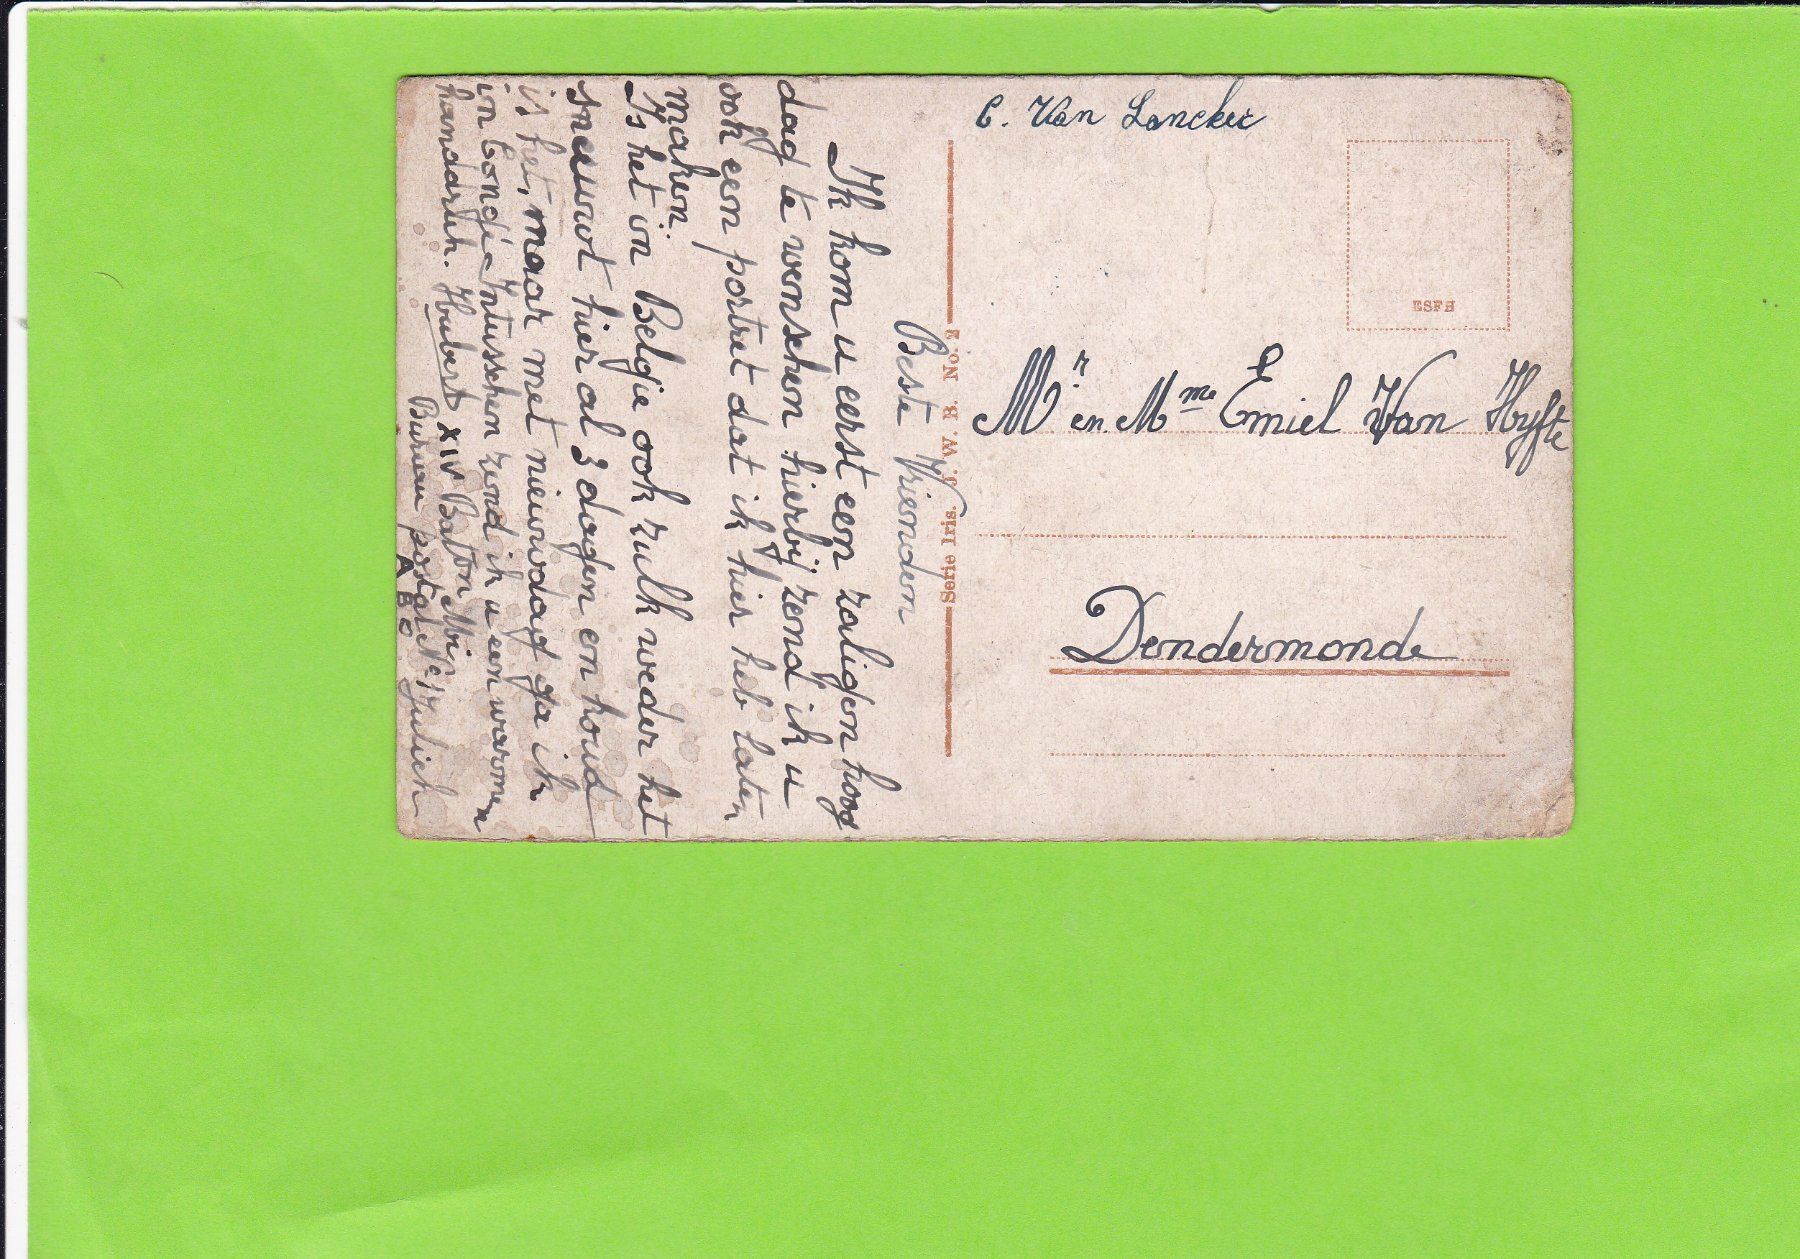 C. Van Lancker
ESFB
Mr en Mme Emiel Van Hyfte
Dendermonde
Serie Iris. J. W. B. No.
Beste Vrienden
Ik kom u eerst een zaligen hoog
dag te wenschen hierbij zend ik u
ook een portret dat ik hier heb laten
maken.
Is het in Belgie ook zulk weder het
sneeuwt hier al 3 dagen en koud
is het, maar met nieuwdag ga ik
in Congé. Intusschen zend ik u een warmen
handdruk. Hubert XIV Baton Mbi
Bureau postal No 1 Julich
A B O